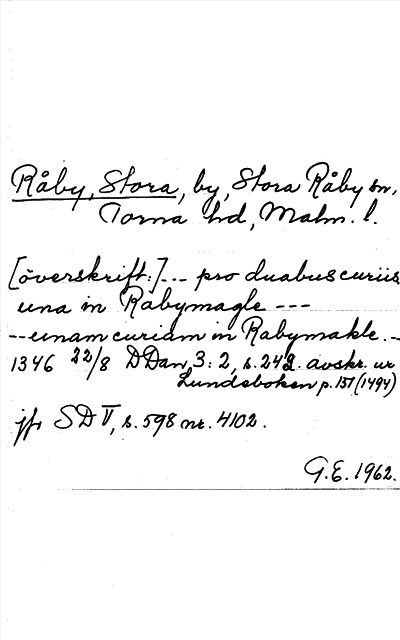 Råby, Stora, by, Stora Råby sn,
Torna hd, Malm. l.
[överskrift:] --- pro duabus curiis
una in Rabymagle ---
-- unam curiam in Rabymakle. --
1346 22/8 DDan 3:2, s. 242. avskr. ur
Lundeboken p. 151 (1494)
jfr SD V, s. 598 nr. 4102.
G.E. 1962.